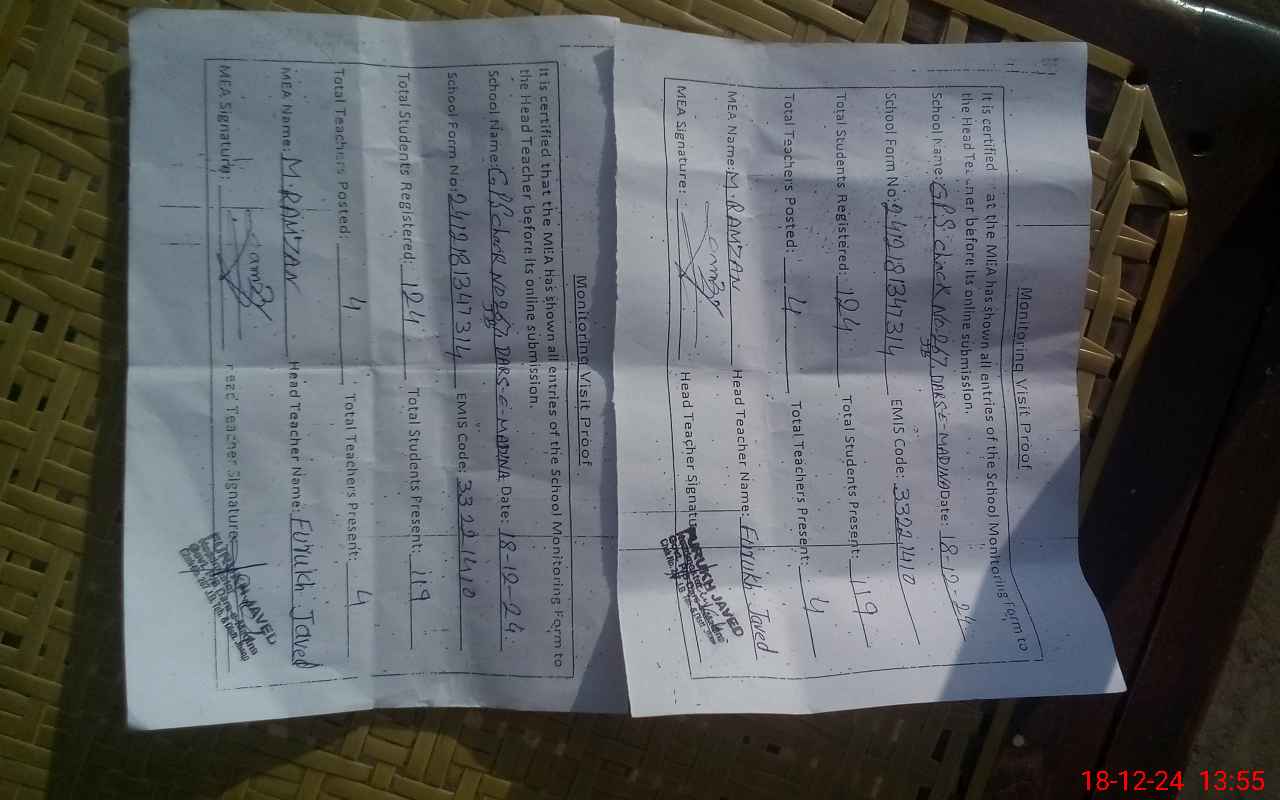 Monitoring Visit Proof
It is certified that the MEA has shown all entries of the School Monitoring Form to
the Head Teacher before its online submission.
School Name: GPS Chack NO 247, DARS-E-MADINA Date: 18-12-24
JB
School Form No: 2412181347314 EMIS Code: 33221410
Total Students Registered: 124 Total Students Present: 119
Total Teachers Posted: 4 Total Teachers Present: 4
MEA Name: M.RAMZAN Head Teacher Name: Furukh Javed
MEA Signature: Head Teacher Signature
FURUKH JAVED
Monitoring Visit Proof
It is certified that the MEA has shown all entries of the School Monitoring Form to
the Head Teacher before its online submission.
School Name: GPS Chack NO DARS-E-MADINA Date: 18-12-24
JB
School Form No: 2412181347314 EMIS Code: 33221410
Total Students Registered: 124 Total Students Present: 119
Total Teachers Posted: 4 Total Teachers Present: 4
MEA Name: M.RAMZAN Head Teacher Name: Furukh Javed
MEA Signature: Head Teacher Signature
FURUKH JAVED
18-12-24 13:55